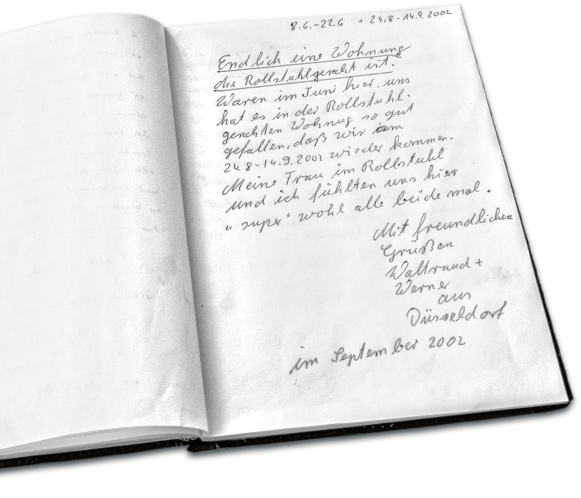 8.6.-22.6 + 24.8-14.9.2002
Endlich eine Wohnung
die Rollstuhlgerecht ist.
Waren im Juni hier, uns
hat es in der Rollstuhl.
gerechten Wohnug so gut
gefallen, daß wir im
24.8-14.9.2002 wieder kommen.
Meine Frau im Rollstuhl
und ich fühlten uns hier
"super" wohl alle beide mal.
Mit freundlichen
Grußen
Waltraud +
Werner
aus
Düsseldorf
im September 2002